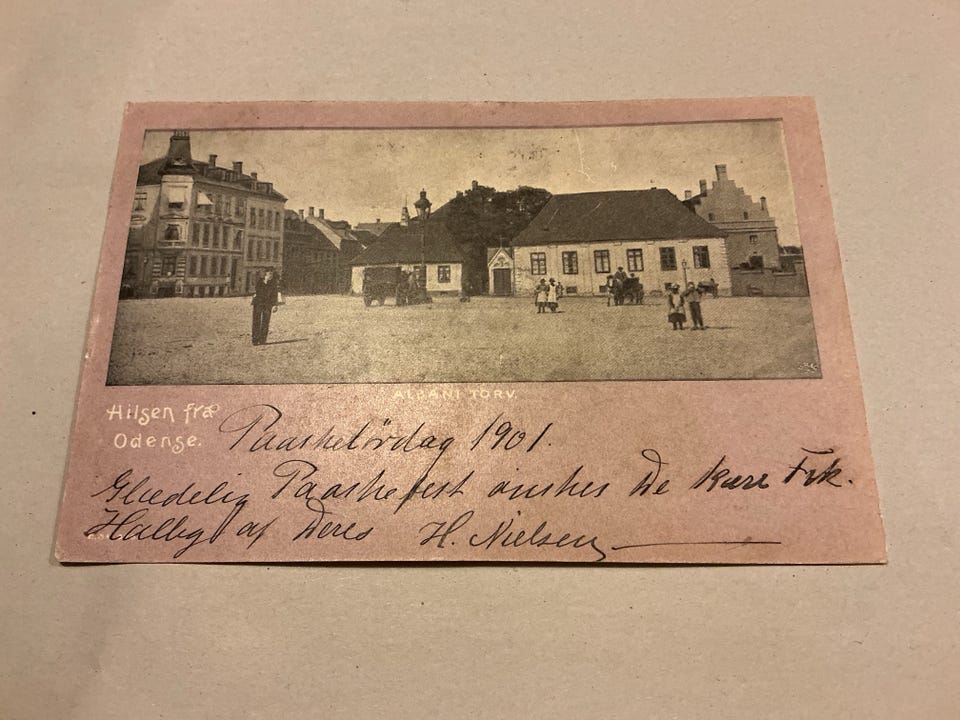 ALBANI TORV.
Hilsen fra
Odense.
Paaskelørdag 1901.
Glædelig Paaskefest ønskes De kære Frk.
Hallby af Deres H. Nielsen